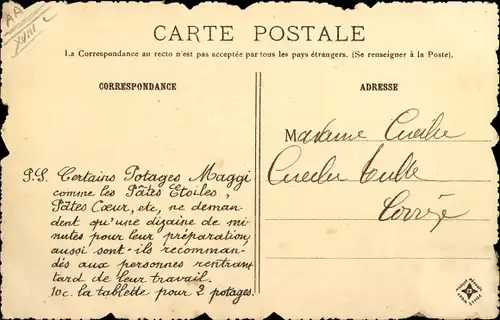 AA
XVIII c
CARTE POSTALE
La Correspondance au recto n'est pas acceptée par tous les pays étrangers. (Se renseigner à la Poste).
CORRESPONDANCE
P.S. Certains Potages Maggi
comme les Pâtes Etoiles
Pâtes Cœur, etc, ne deman
dent qu'une dizaine de mi-
nutes pour leur préparation,
aussi sont-ils recomman-
dés aux personnes rentrant
tard de leur travail.
10c. la tablette pour 2 potages.
ADRESSE
Madame
Tulle
Corrèze